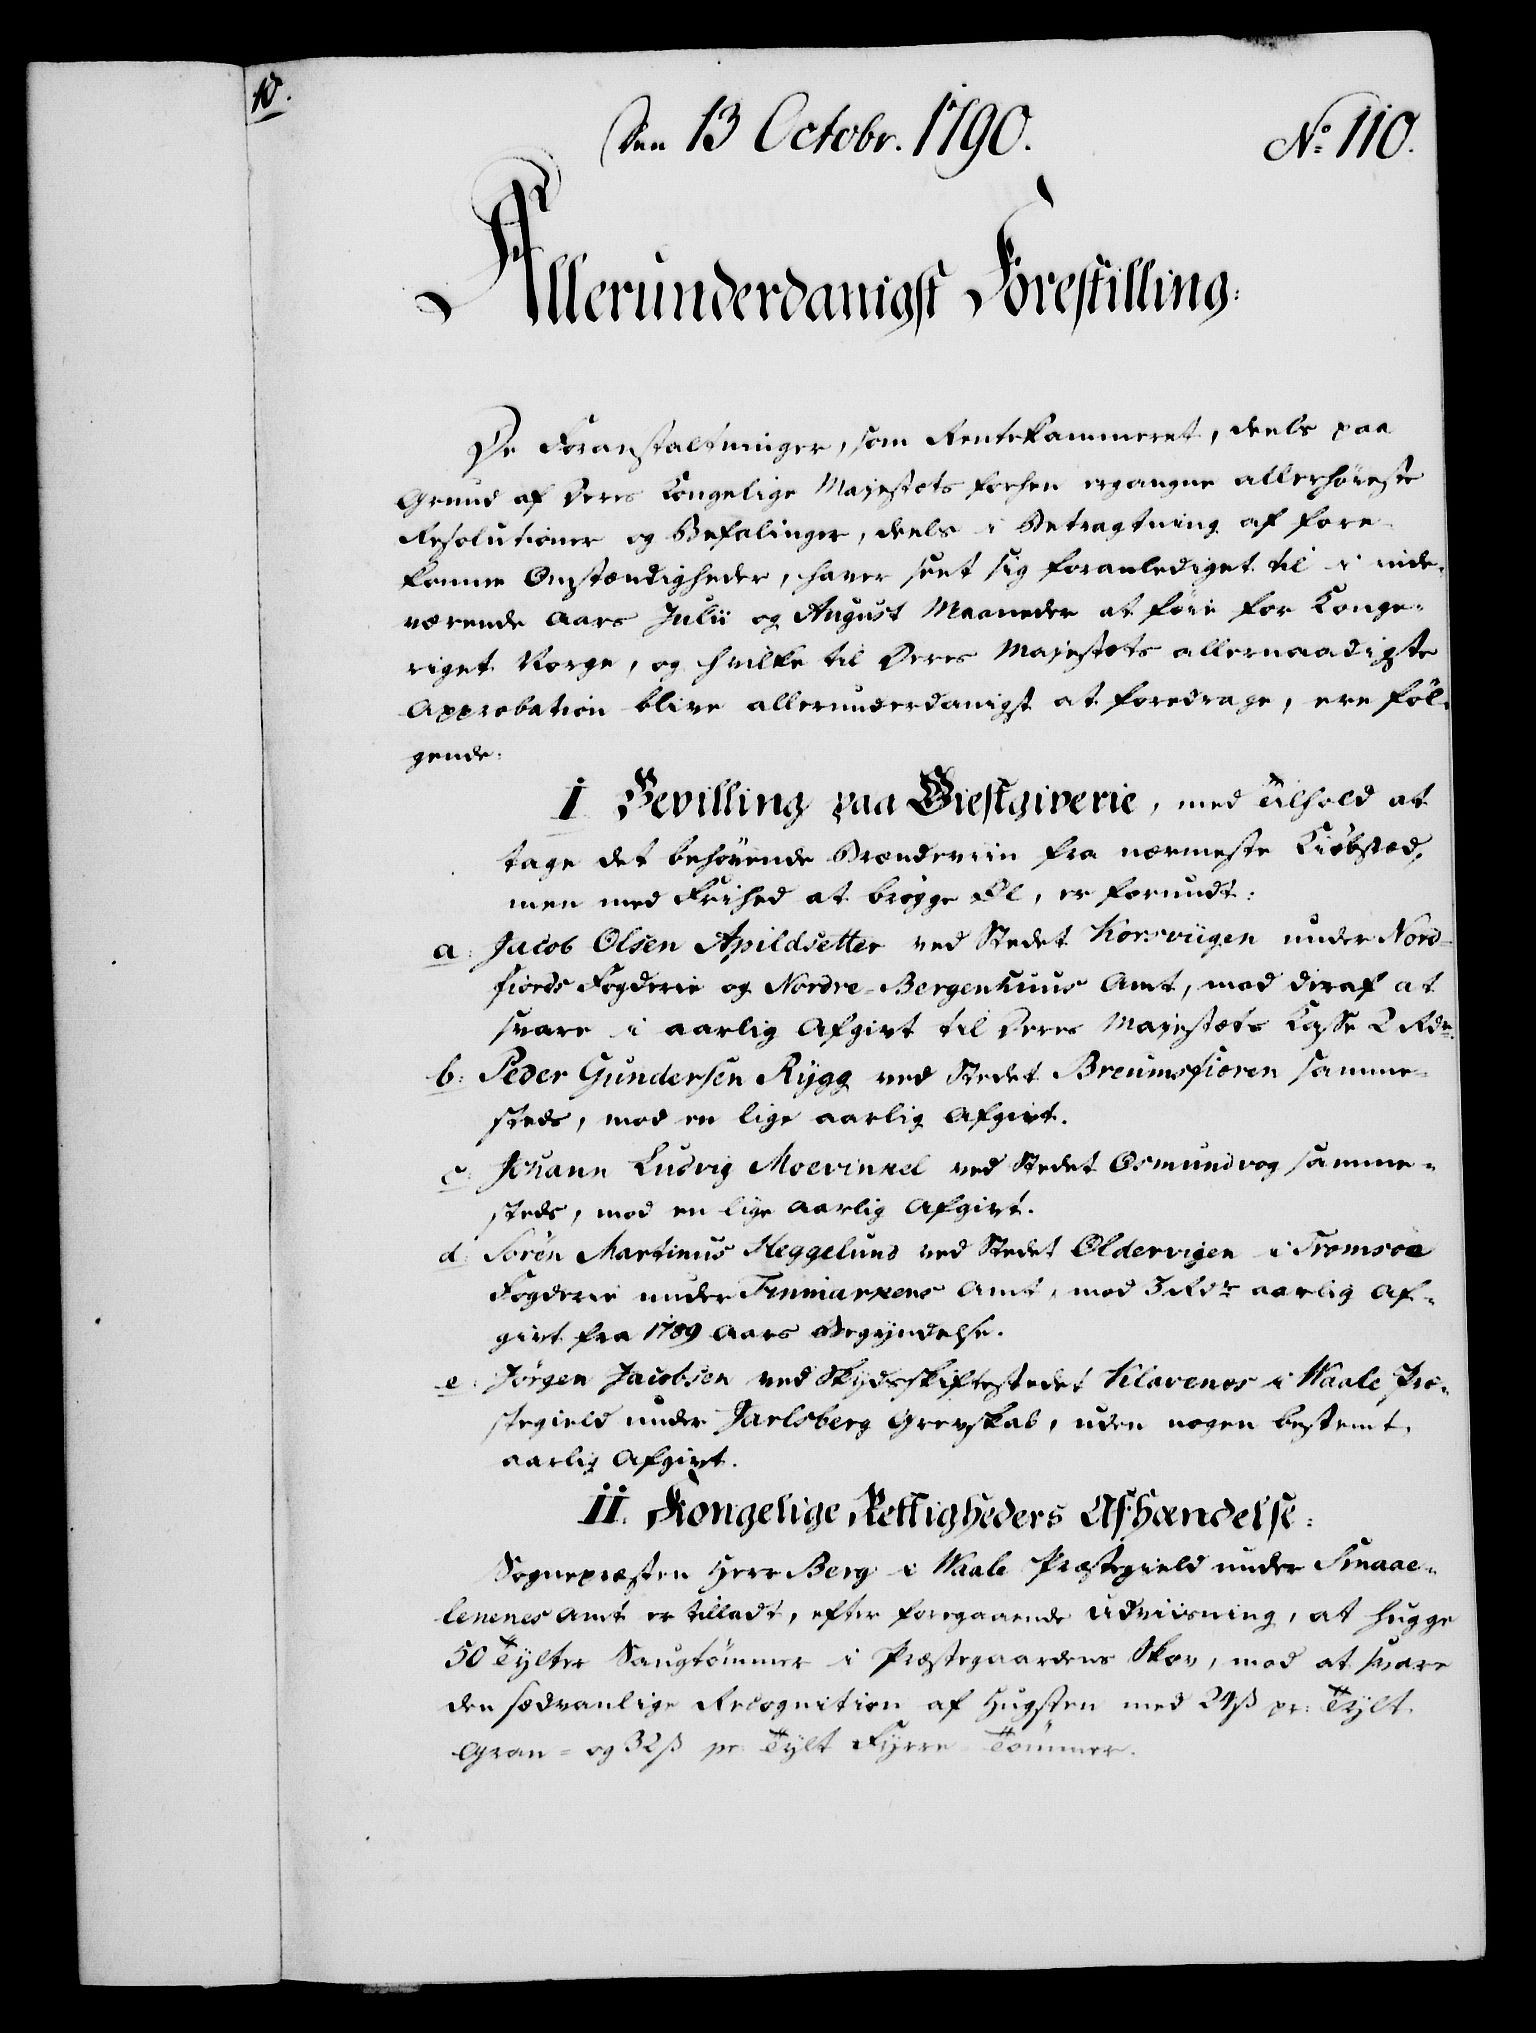 10.
Den 13 Octobr. 1790.
No: 110.
Allerunderdanigst Forestilling:
De Foranstaltninger, som Rentekammeret, deels paa
Grund af Deres Kongelige Majestæts forhen ergangne allerhöieste
Resolutioner og Befalinger, deels i Betragtning af fore-
komne Omstændigheder, haver seet sig foranlediget til i inde-
værende Aars Julii og August Maaneder at föie for Konge-
riget Norge, og hvilke til Deres Majestæts allernaadigste
Approbation blive allerunderdanigst at foredrage, ere föl-
gende:
I Bevilling paa Giestgiverie, med Tilhold at
tage det behövende Brændeviin fra nærmeste Kiöbstæd,
men med Frihed at brögge Öl, er forundt:
a: Jacob Olsen Apildsetter ved Stedet Korsviigen under Nord-
fiords Fogderie og Nordre-Bergenhuus Amt, mod deraf at
svare i aarlig Afgivt til Deres Majestæts Kasse 2 Rdr.
b: Peder Gundersen Rygg ved Stedet Breumsfioren samme-
steds, mod en lige aarlig Afgivt.
c: Johann Ludvig Moevinkel ved Stedet Osmundvog samme-
steds, mod en lige aarlig Afgivt.
d: Sören Martinus Heggelund ved Stedet Oldervigen i Tromsöe
Fogderie under Finmarkens Amt, mod 3 Rdr aarlig Af-
givt fra 1789 Aars Begyndelse.
e: Jörgen Jacobsen ved Skydsskiftestedet Klavenes i Waale Præ-
stegield under Jarlsberg Grevskab, uden nogen bestemt
aarlig Afgivt.
II. Kongelige Rettigheders Afhændelse:
Sognepræsten Herr Berg i Waale Præstegield under Smaae-
lenenes Amt er tilladt, efter foregaaende Udviisning, at hugge
50 Tylter Saugtömmer i Præstegaardens Skov, mod at svare
den sædvanlige Recognition af Hugsten med 24 ß pr: Tylt
Gran- og 32 ß pr: Tylt Fyrre-Tömmer.